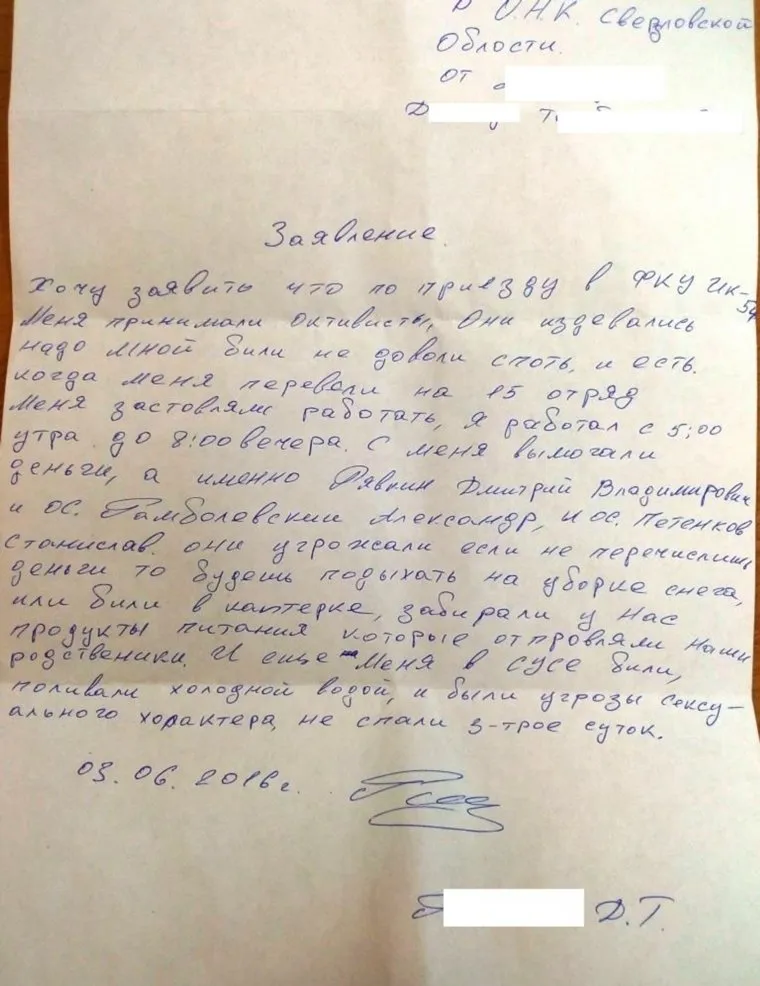 О.Н.К. Свердловской
Области.
от
Д Т
Заявление.
Хочу заявить что по приезду в ФКУ ИК-54
Меня принимали октивисты, Они издевались
надо мной били не довали споть, и есть.
когда меня перевели на 15 отряд
Меня застовляли работать, я работал с 5:00
утра до 8:00 вечера. С меня вымогали
деньги, а именно Рявкин Дмитрий Владимирович
и ос. Гамболевский Александр, и ос. Петенков
Станислав. они угрожсали если не перечислишь
деньги то будешь подыхать на уборке снега,
или били в коптерке, забирали у нас
продукты питания которые отпровляли наши
родственики. И еще меня в сусе били,
поливали холодной водой, и были угрозы сексу-
ального хорактера, не спали 3-трое суток.
03.06.2016г.
Д.Т.